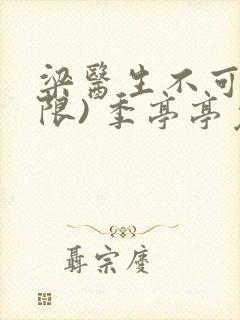 梁醫生不可
限)季亭亭
聶宗慶